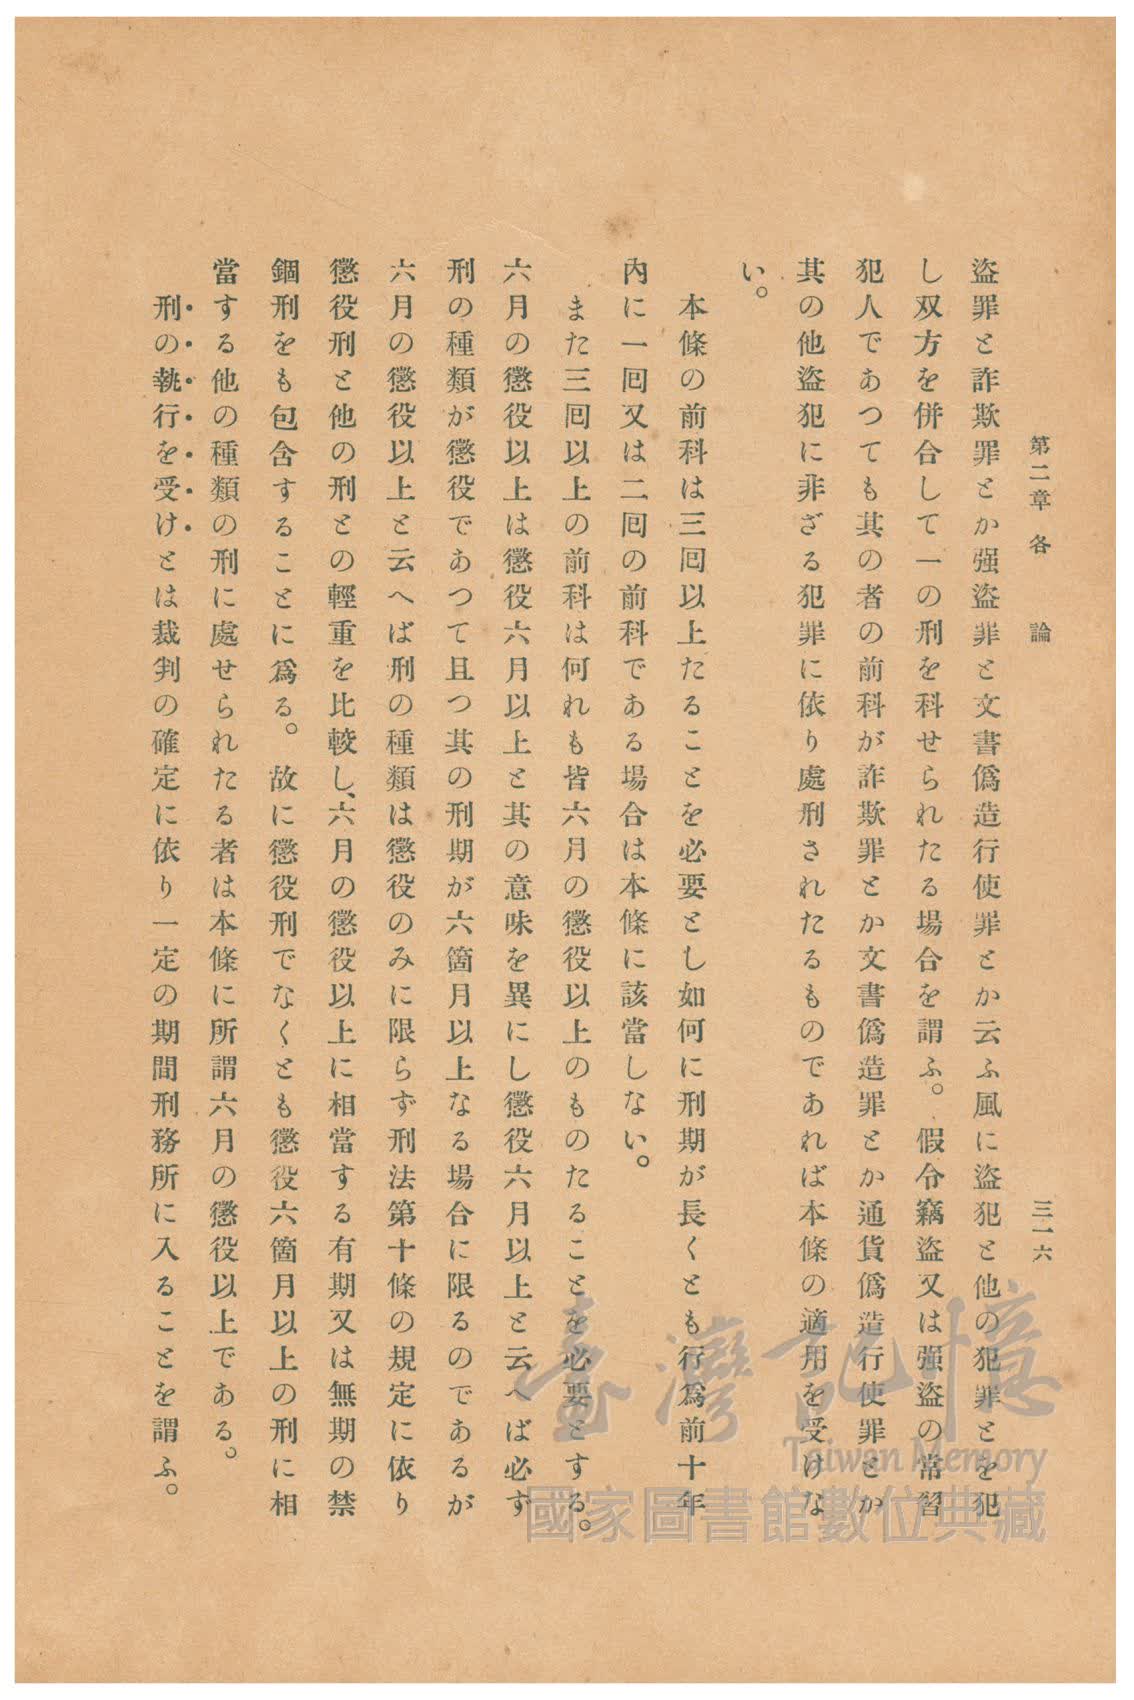 第二章 各 論
三一六
盜罪と詐欺罪とか强盜罪と文書僞造行使罪とか云ふ風に盜犯と他の犯罪とを犯
し双方を併合して一の刑を科せられたる場合を謂ふ。假令竊盜又は强盜の常習
犯人であつても其の者の前科が詐欺罪とか文書僞造罪とか通貨僞造行使罪とか
其の他盜犯に非ざる犯罪に依り處刑されたるものであれば本條の適用を受けな
い。
本條の前科は三囘以上たることを必要とし如何に刑期が長くとも行爲前十年
內に一囘又は二囘の前科である場合は本條に該當しない。
また三囘以上の前科は何れも皆六月の懲役以上のものたることを必要とする。
六月の懲役以上は懲役六月以上と其の意味を異にし懲役六月以上と云へば必ず
刑の種類が懲役であつて且つ其の刑期が六箇月以上なる場合に限るのであるが
六月の懲役以上と云へば刑の種類は懲役のみに限らず刑法第十條の規定に依り
懲役刑と他の刑との輕重を比較し、六月の懲役以上に相當する有期又は無期の禁
錮刑をも包含することに爲る。故に懲役刑でなくとも懲役六箇月以上の刑に相
當する他の種類の刑に處せられたる者は本條に所謂六月の懲役以上である。
刑の執行を受けとは裁判の確定に依り一定の期間刑務所に入ることを謂ふ。
臺灣記憶
Taiwan Memory
國家圖書館數位典藏